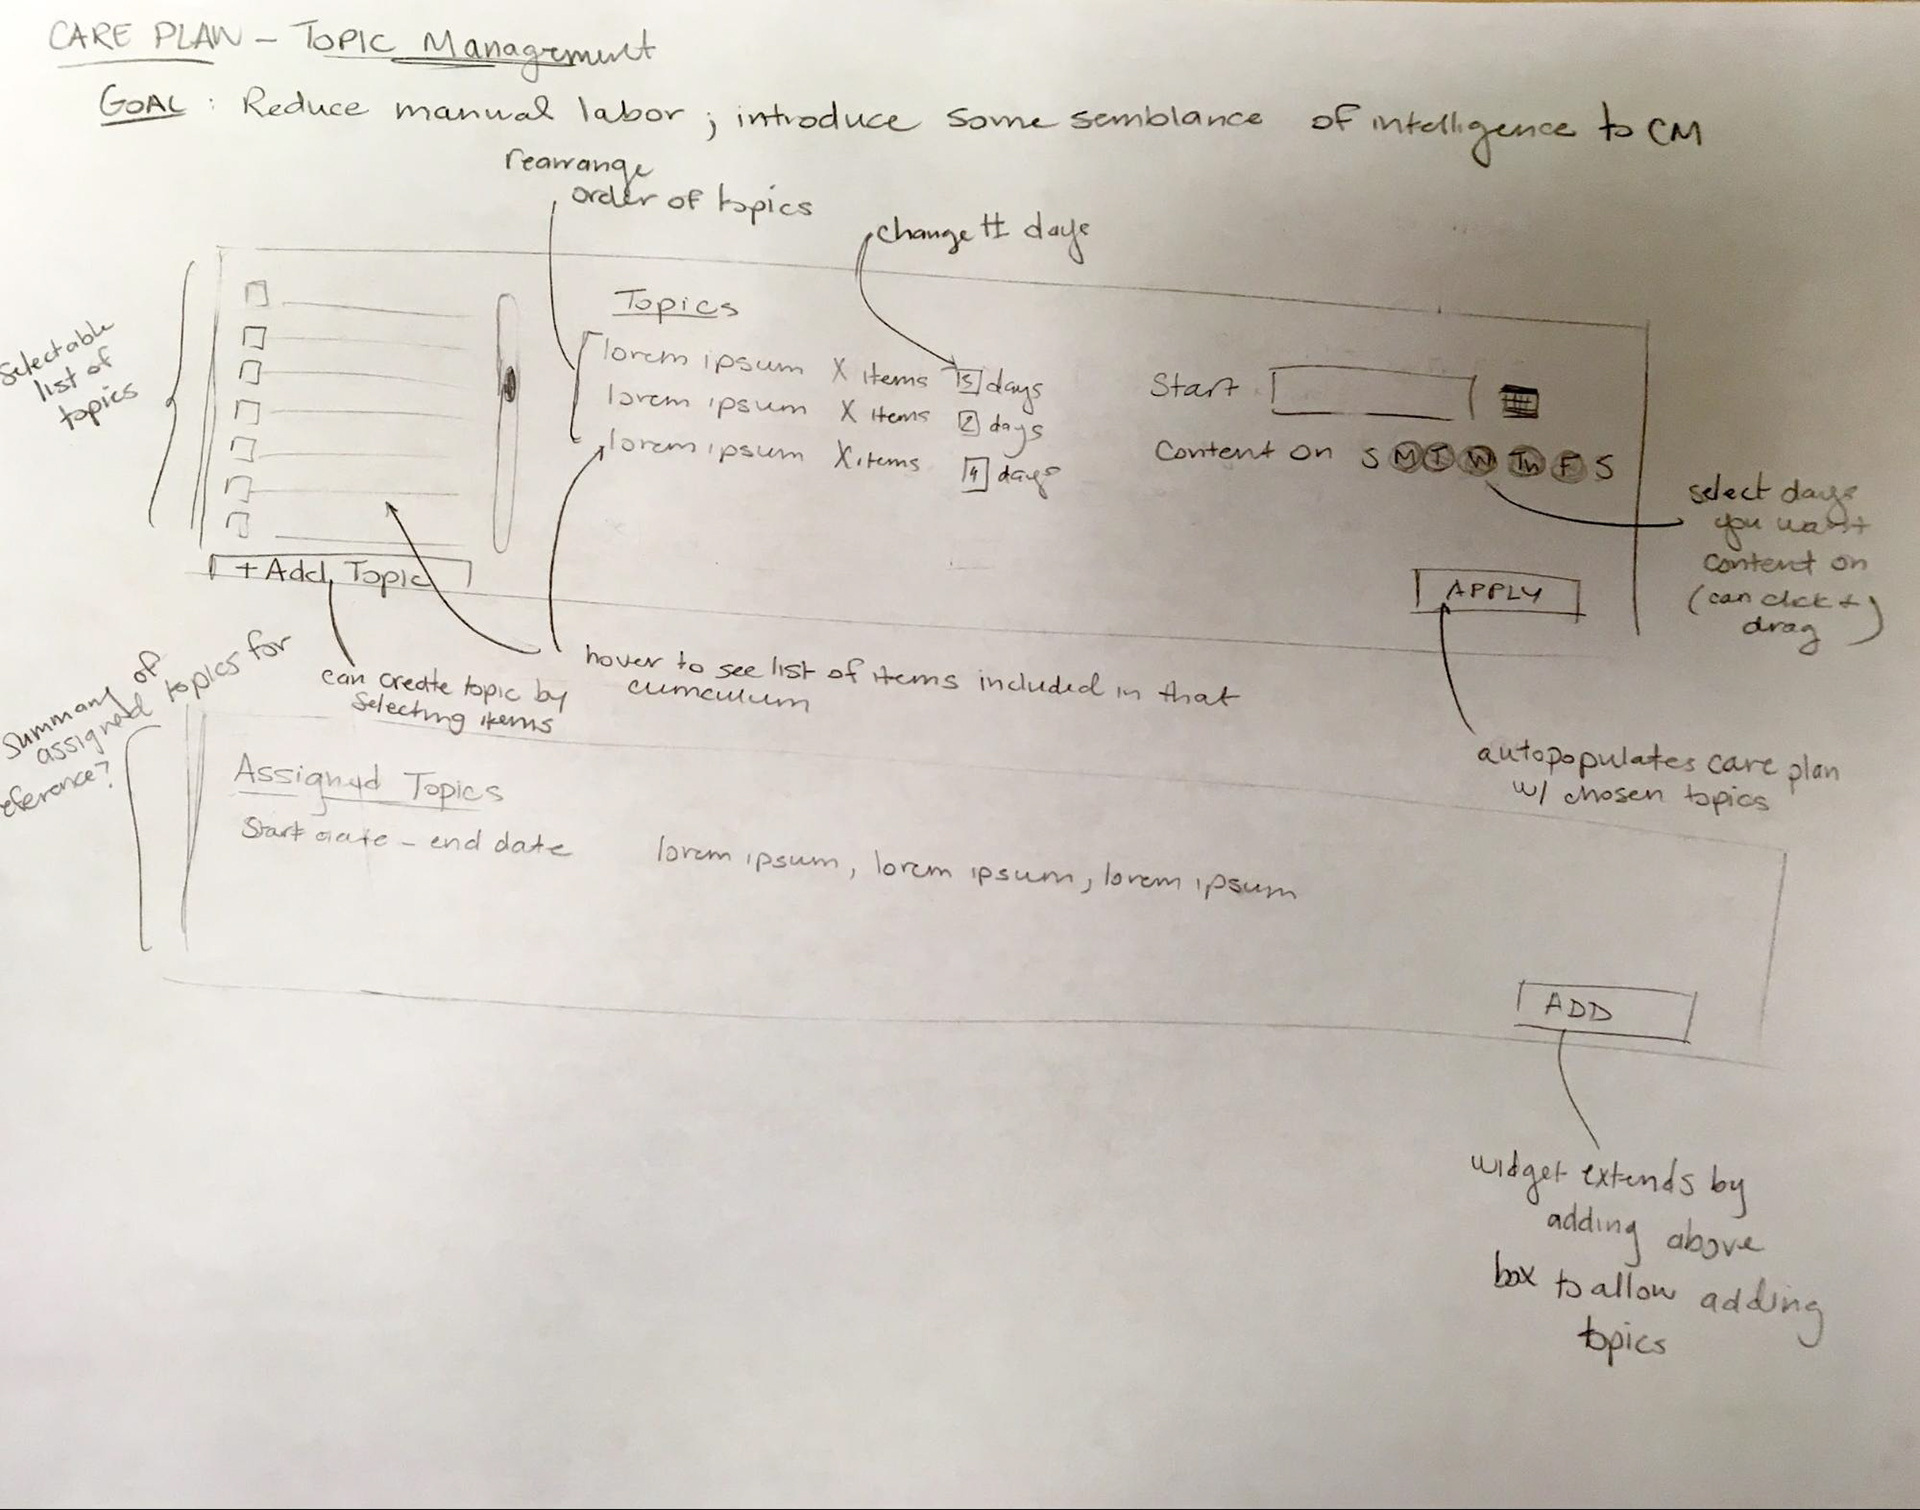 CARE PLAN - TOPIC Management
GOAL : Reduce manual labor ; introduce some semblance of intelligence to CM
rearrange
order of topics
change # days
Selectable
list of
topics
Topics
lorem ipsum X items 5 days
lorem ipsum X items 2 days
lorem ipsum X items 4 days
Start
Content on S M T W Th F S
select days
you want
content on
(can click +
drag)
+ Add Topic
APPLY
can create topic by
selecting items
hover to see list of items included in that
curriculum
autopopulates care plan
w/ chosen topics
Summary of
assigned topics for
reference?
Assigned Topics
Start date - end date lorem ipsum, lorem ipsum, lorem ipsum
ADD
widget extends by
adding above
box to allow adding
topics